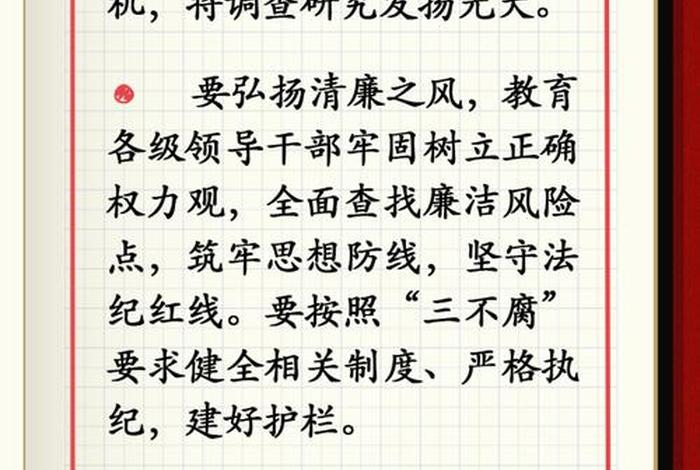 机，将调查研究发扬光大。
要弘扬清廉之风，教育
各级领导干部牢固树立正确
权力观，全面查找廉洁风险
点，筑牢思想防线，坚守法
纪红线。要按照“三不腐”
要求健全相关制度、严格执
纪，建好护栏。